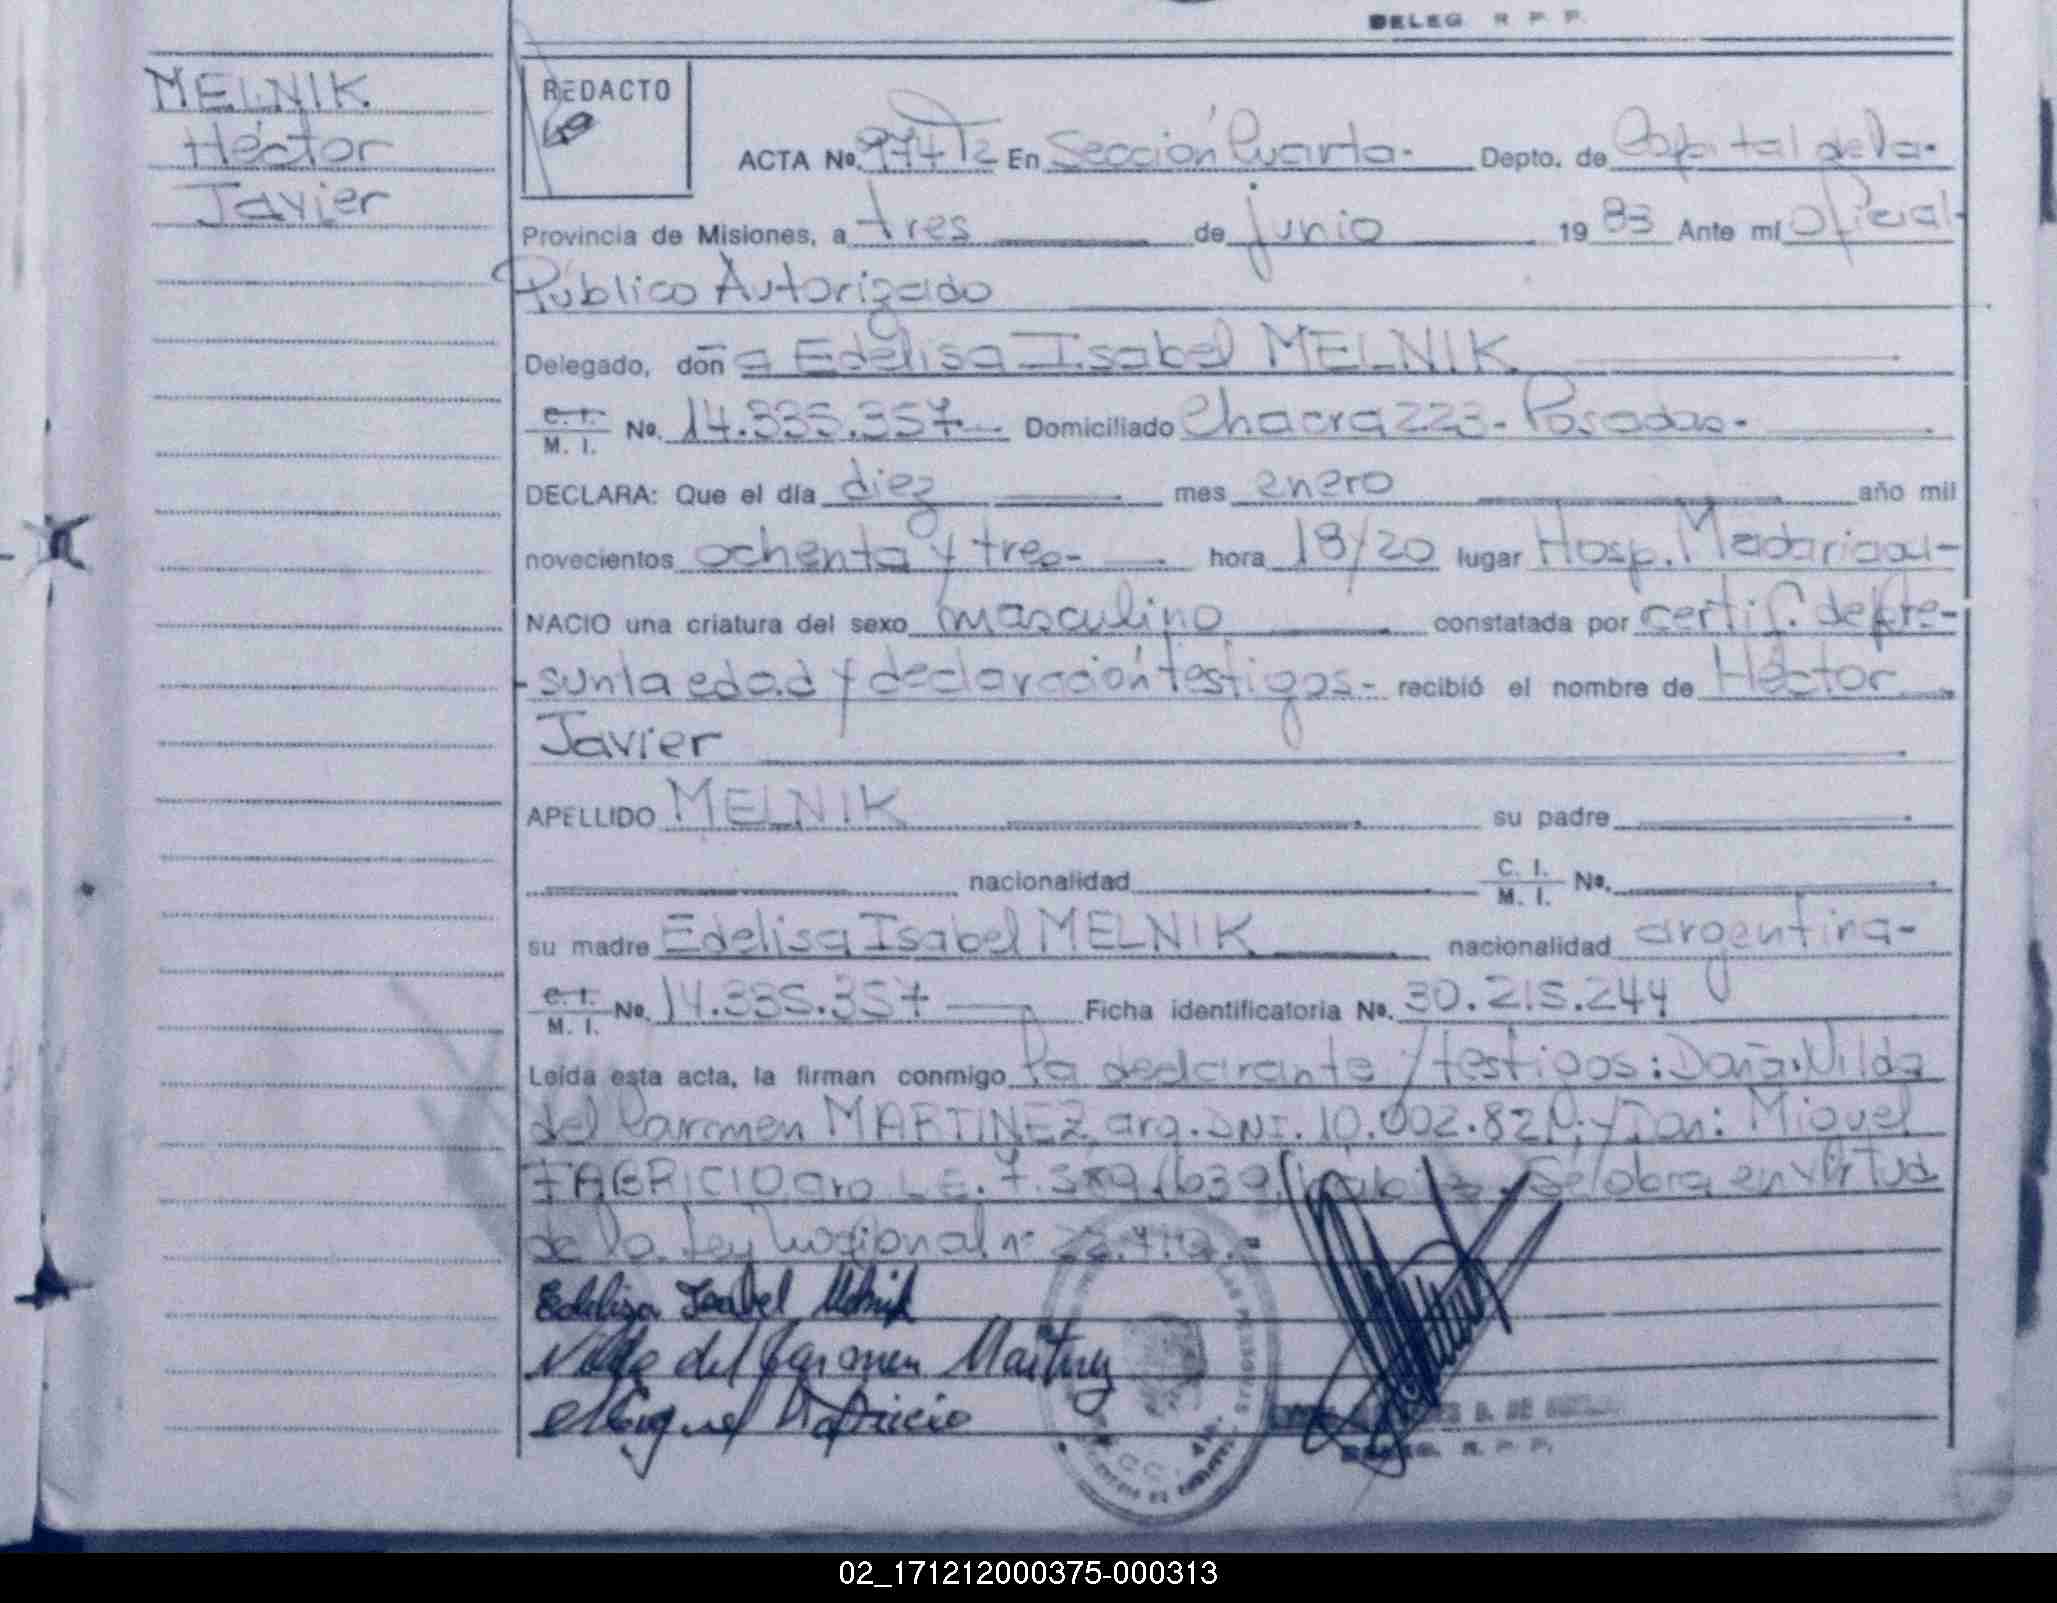 DELEG. R. P. P.
MELNIK
Héctor
Javier
REDACTO
ACTA No. 974 T2 En Sección Cuarta- Depto. de Capital de la-
Provincia de Misiones, a tres de junio 1983 Ante mí Oficial-
Público Autorizado
Delegado, doña Edelisa Isabel MELNIK
C. I. M. I. No. 14.335.357 Domiciliado Chacra 223- Posadas-
DECLARA: Que el día diez mes enero año mil
novecientos ochenta y tres- hora 18/20 lugar Hosp. Madariaga-
NACIO una criatura del sexo masculino constatada por certif. de pre-
-sunta edad y declaración testigos- recibió el nombre de Héctor
Javier
APELLIDO MELNIK su padre
nacionalidad C. I. M. I. No.
su madre Edelisa Isabel MELNIK nacionalidad argentina-
C. I. M. I. No. 14.335.357 Ficha identificatoria No. 30.215.244
Leída esta acta, la firman conmigo la declarante y testigos: Doña Nilda
del Carmen MARTINEZ, arg. DNI. 10.002.82 y Don: Miguel
FABRICIO arg L.E. 7. Se labra en virtud
de la Ley Nacional nº
Edelisa Isabel Melnik
Nilda del Carmen Martinez
Miguel Fabricio
R. P. P.
02_171212000375-000313